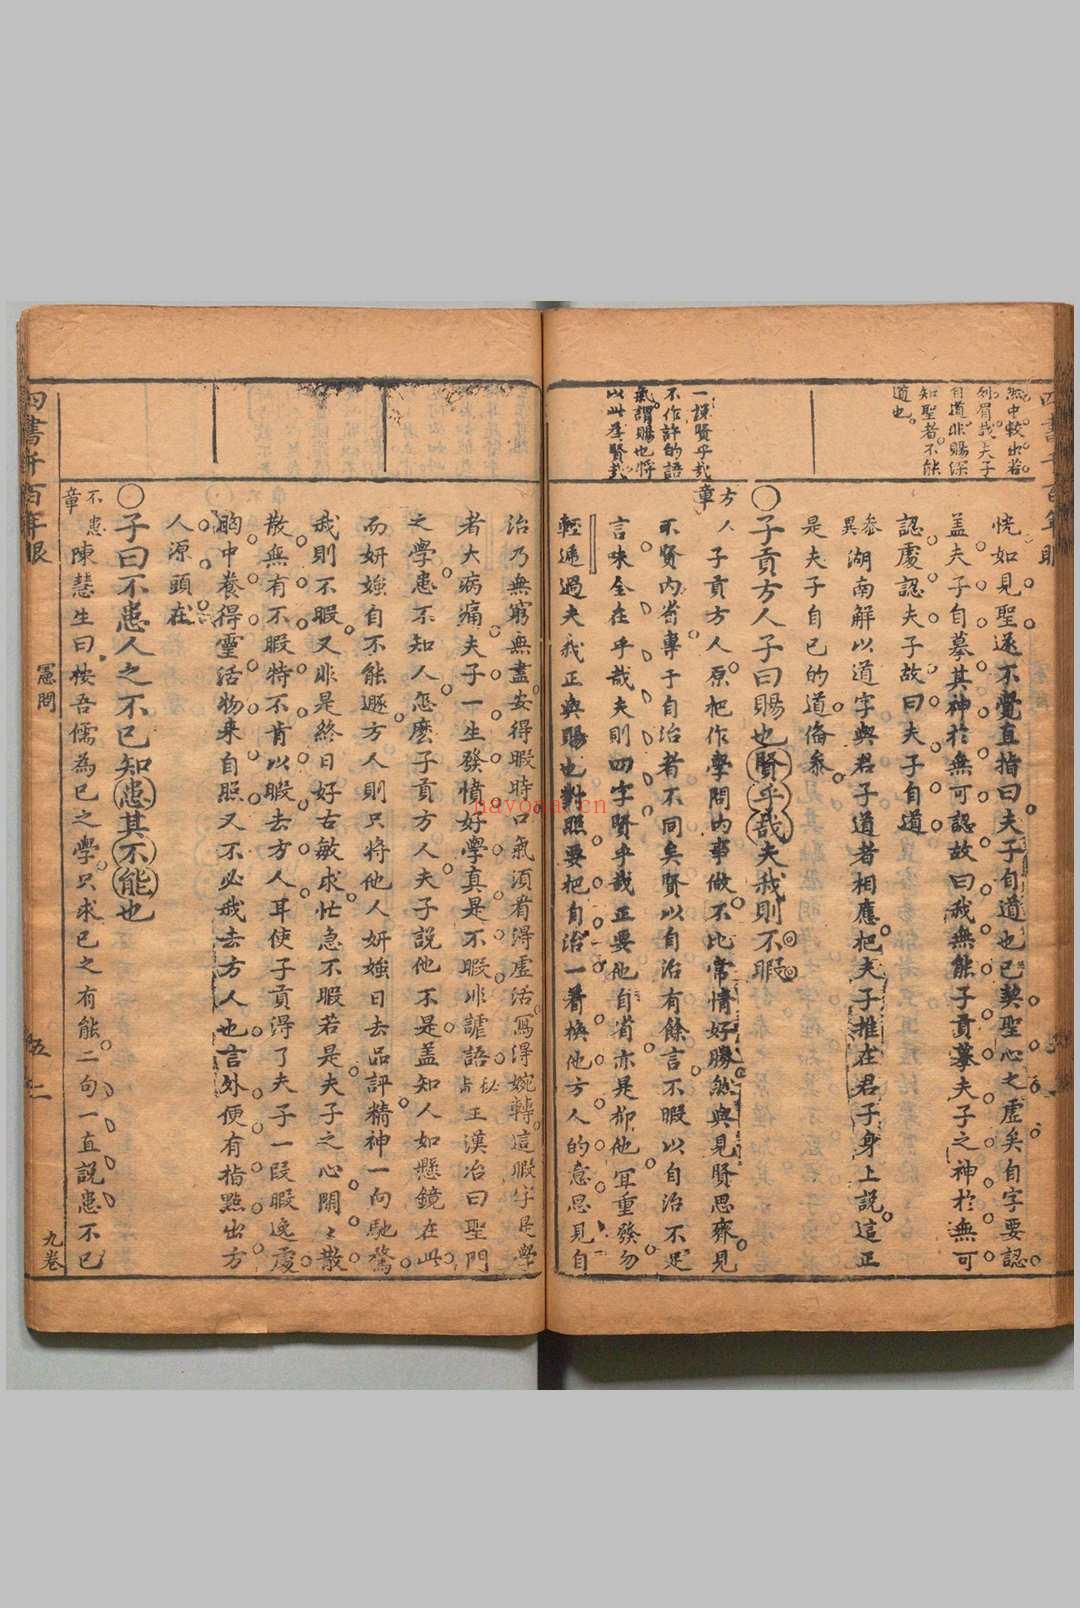 恍如見聖遂不覺直指曰夫子自道也已契聖心之虛矣自字要認
蓋夫子自摹其神於無可認故曰我無能子貢摹夫子之神於無可
認處認夫子故曰夫子自道
參異
湖南解以道字與君子道者相應把夫子推在君子身上說這正
是夫子自已的道脩參
子貢方人子曰賜也賢乎哉夫我則不暇
方人章
子貢方人原把作學問內事做不比常情好勝然與見賢思齊見
不賢內省專于自治者不同矣賢以自治有餘言不暇以自治不足
言味全在乎哉夫則四字賢乎哉正要他自省亦是抑他宜重發勿
輕遞過夫我正與賜也對照要把自治一着換他方人的意思見自
道也
知聖者不能
自道非賜深
列眉哉夫子
中較出若
一說賢乎哉
不作許的語
氣謂賜也將
以此爲賢哉
治乃無窮無盡安得暇時口氣須看得虛活寫得婉轉這暇字是學
者大病痛夫子一生發憤好學真是不暇非謔語
王漢冶曰聖門
之學患不知人怎麽子貢方人夫子說他不是蓋知人如懸鏡在此
而妍媸自不能遯方人則只將他人妍媸日去品評精神一向馳騖
我則不暇又非是終日好古敏求忙急不暇若是夫子之心閒〻散
散無有不暇特不肯以暇去方人耳使子貢得了夫子一段暇逸處
胸中養得靈活物來自照又不必我去方人也言外便有指點出方
人源頭在
子曰不患人之不已知患其不能也
不患章
陳慧生曰按吾儒為已之學只求已之有能二句一直說患不已
憲問
五二
九卷
navona.cn